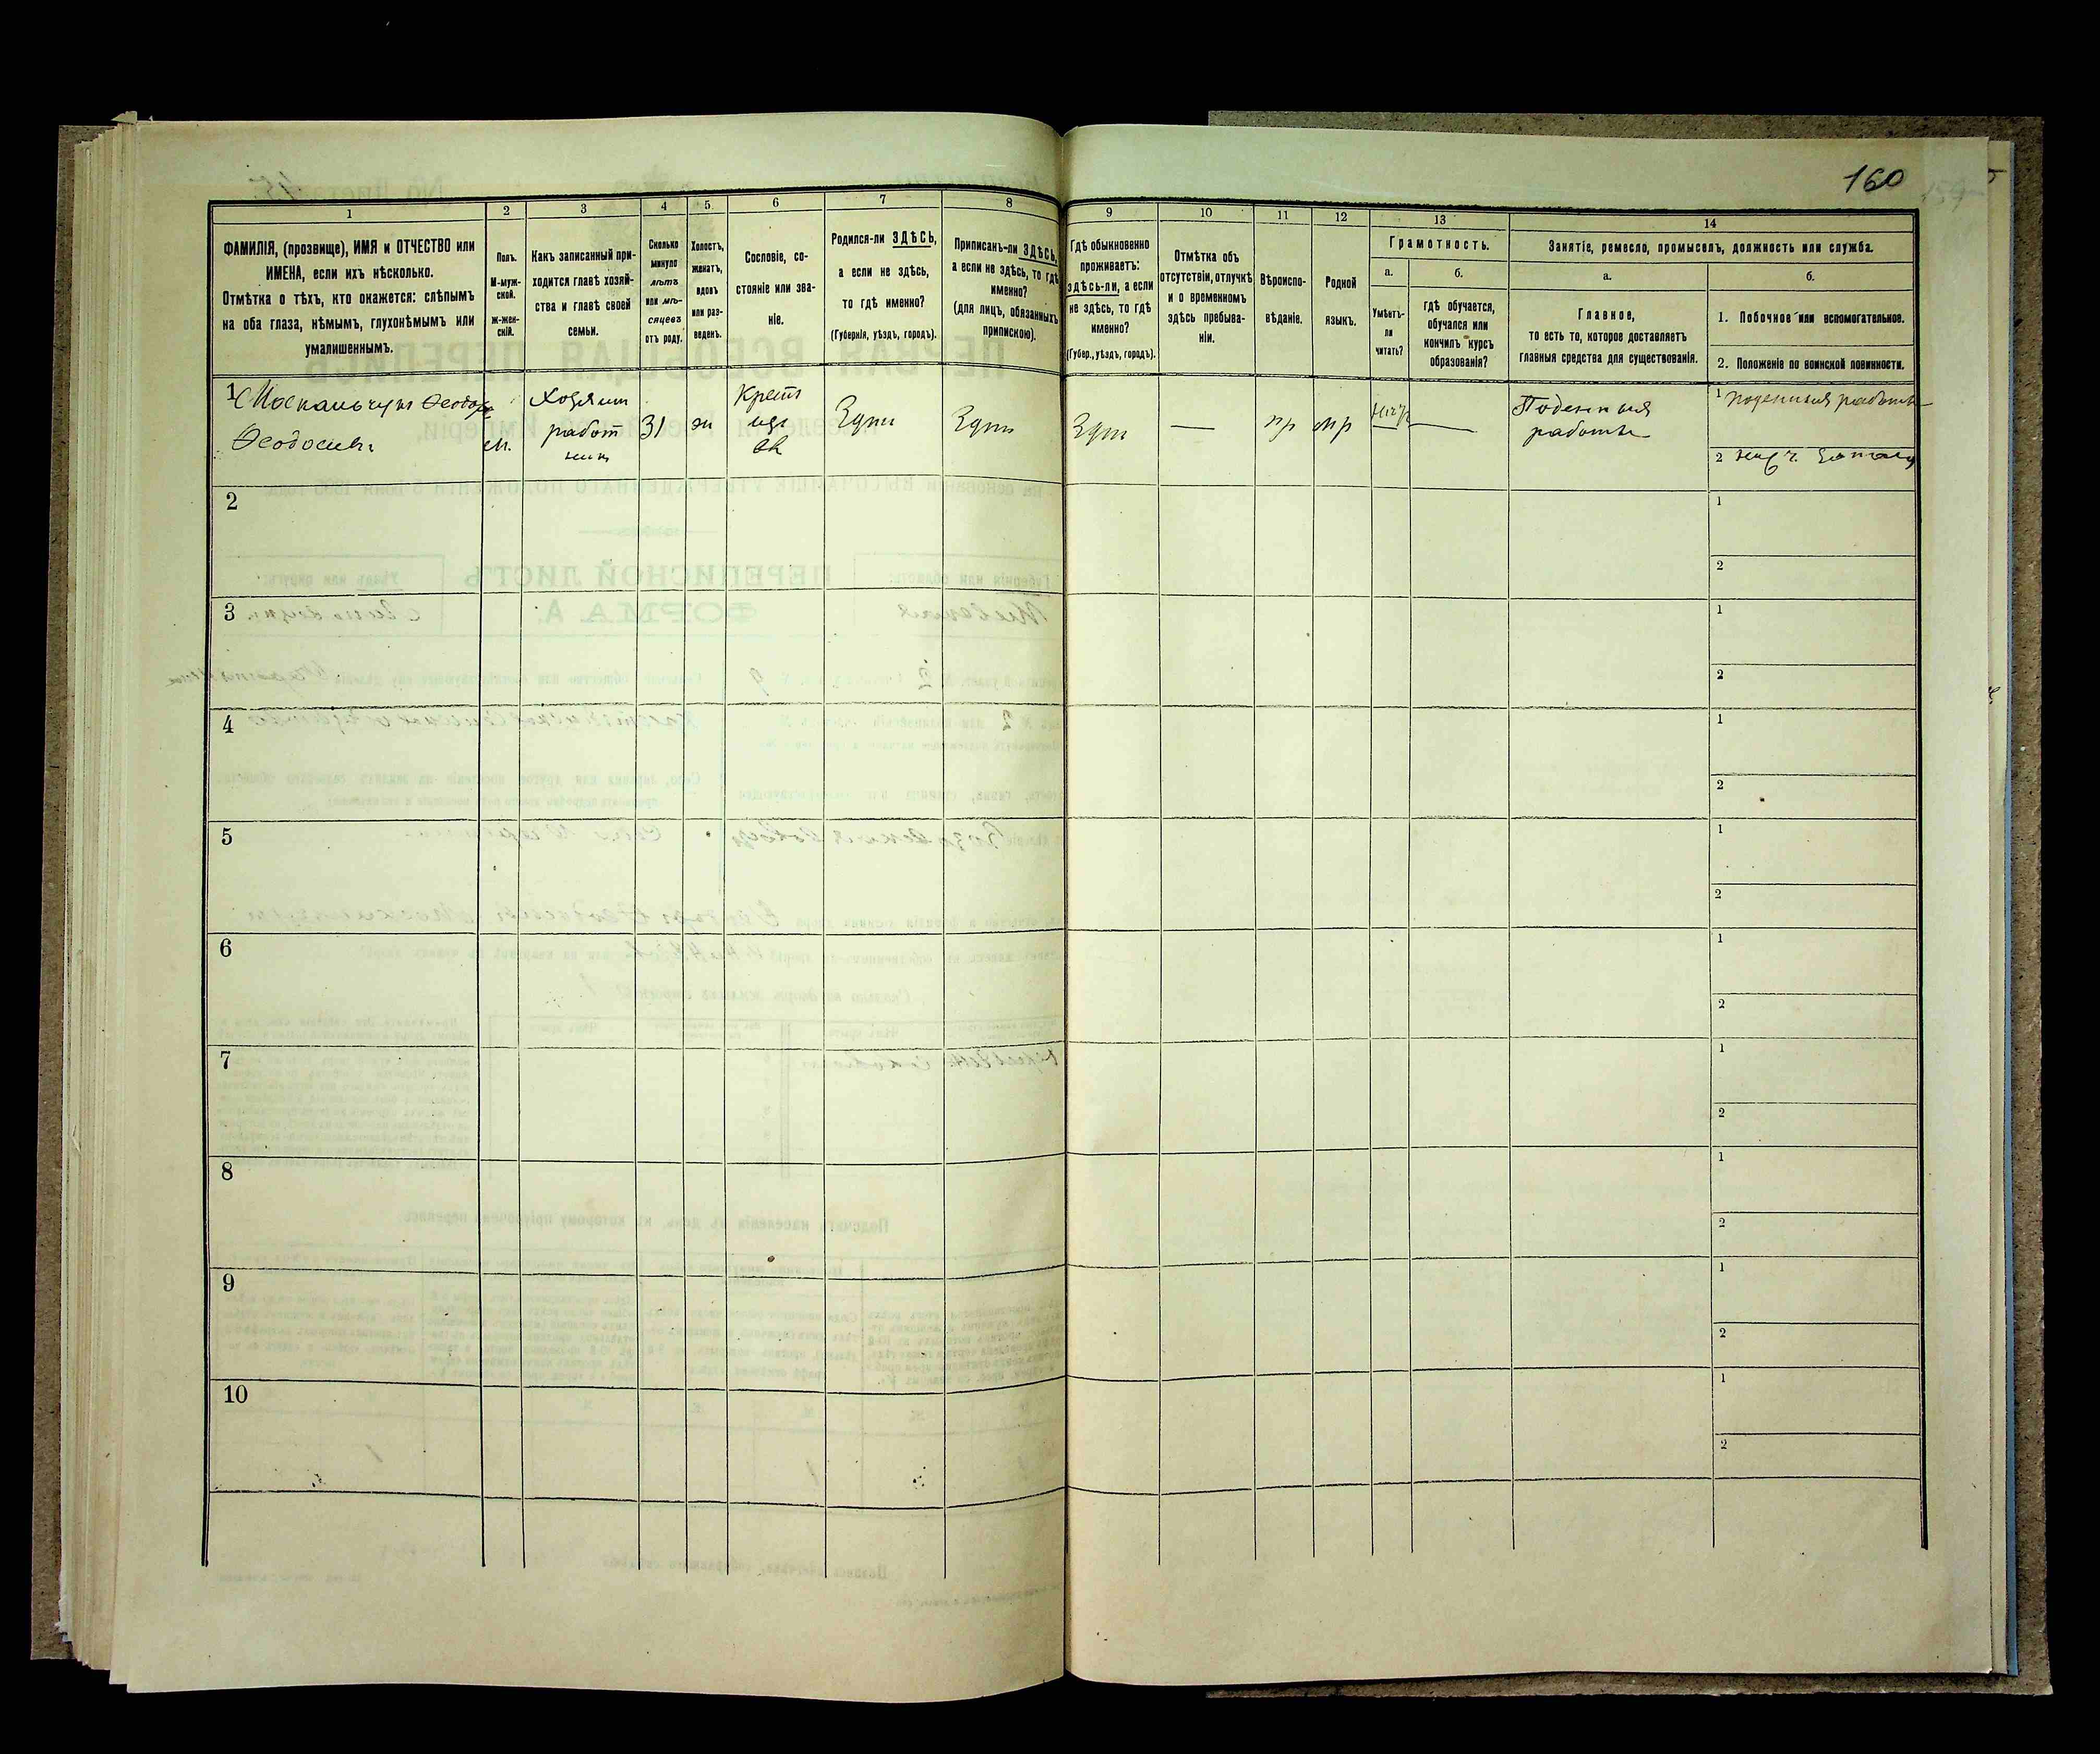 160
1
2
3
4
5
6
7
8
ФАМИЛІЯ, (прозвище), ИМЯ и ОТЧЕСТВО или
ИМЕНА, если ихъ нѣсколько.
Отмѣтка о тѣхъ, кто окажется: слѣпымъ
на оба глаза, нѣмымъ, глухонѣмымъ или
умалишеннымъ.
Полъ.
М-муж-
ской.
ж-жен-
скій.
Какъ записанный при-
ходится главѣ хозяй-
ства и главѣ своей
семьи.
Сколько
минуло
лѣтъ
или мѣ-
сяцевъ
отъ роду.
Холостъ,
женатъ,
вдовъ
или раз-
веденъ.
Сословіе, со-
стояніе или зва-
ніе.
Родился-ли ЗДѢСЬ,
а если не здѣсь,
то гдѣ именно?
(Губернія, уѣздъ, городъ).
Приписанъ-ли ЗДѢСЬ,
а если не здѣсь, то гдѣ
именно?
(для лицъ, обязанныхъ
припискою).
9
10
11
12
13
14
Гдѣ обыкновенно
проживаетъ:
здѣсь-ли, а если
не здѣсь, то гдѣ
именно?
(Губер., уѣздъ, городъ).
Отмѣтка объ
отсутствіи, отлучкѣ
и о временномъ
здѣсь пребыва-
ніи.
Вѣроиспо-
вѣданіе.
Родной
языкъ.
Грамотность.
а.
б.
Умѣетъ-
ли
читать?
гдѣ обучается,
обучался или
кончилъ курсъ
образованія?
Занятіе, ремесло, промыселъ, должность или служба.
а.
б.
Главное,
то есть то, которое доставляетъ
главныя средства для существованія.
1. Побочное или вспомогательное.
2. Положеніе по воинской повинности.
1
Ѳеодосіевъ
м.
Хозяинъ
работ
никъ
31
ж
Крест
Здѣсь
Здѣсь
Здѣсь
—
пр
мр
—
Поденныя
работы
1 поденныя работы
2
2
1
2
3
1
2
4
1
2
5
1
2
6
1
2
7
1
2
8
1
2
9
1
2
10
1
2